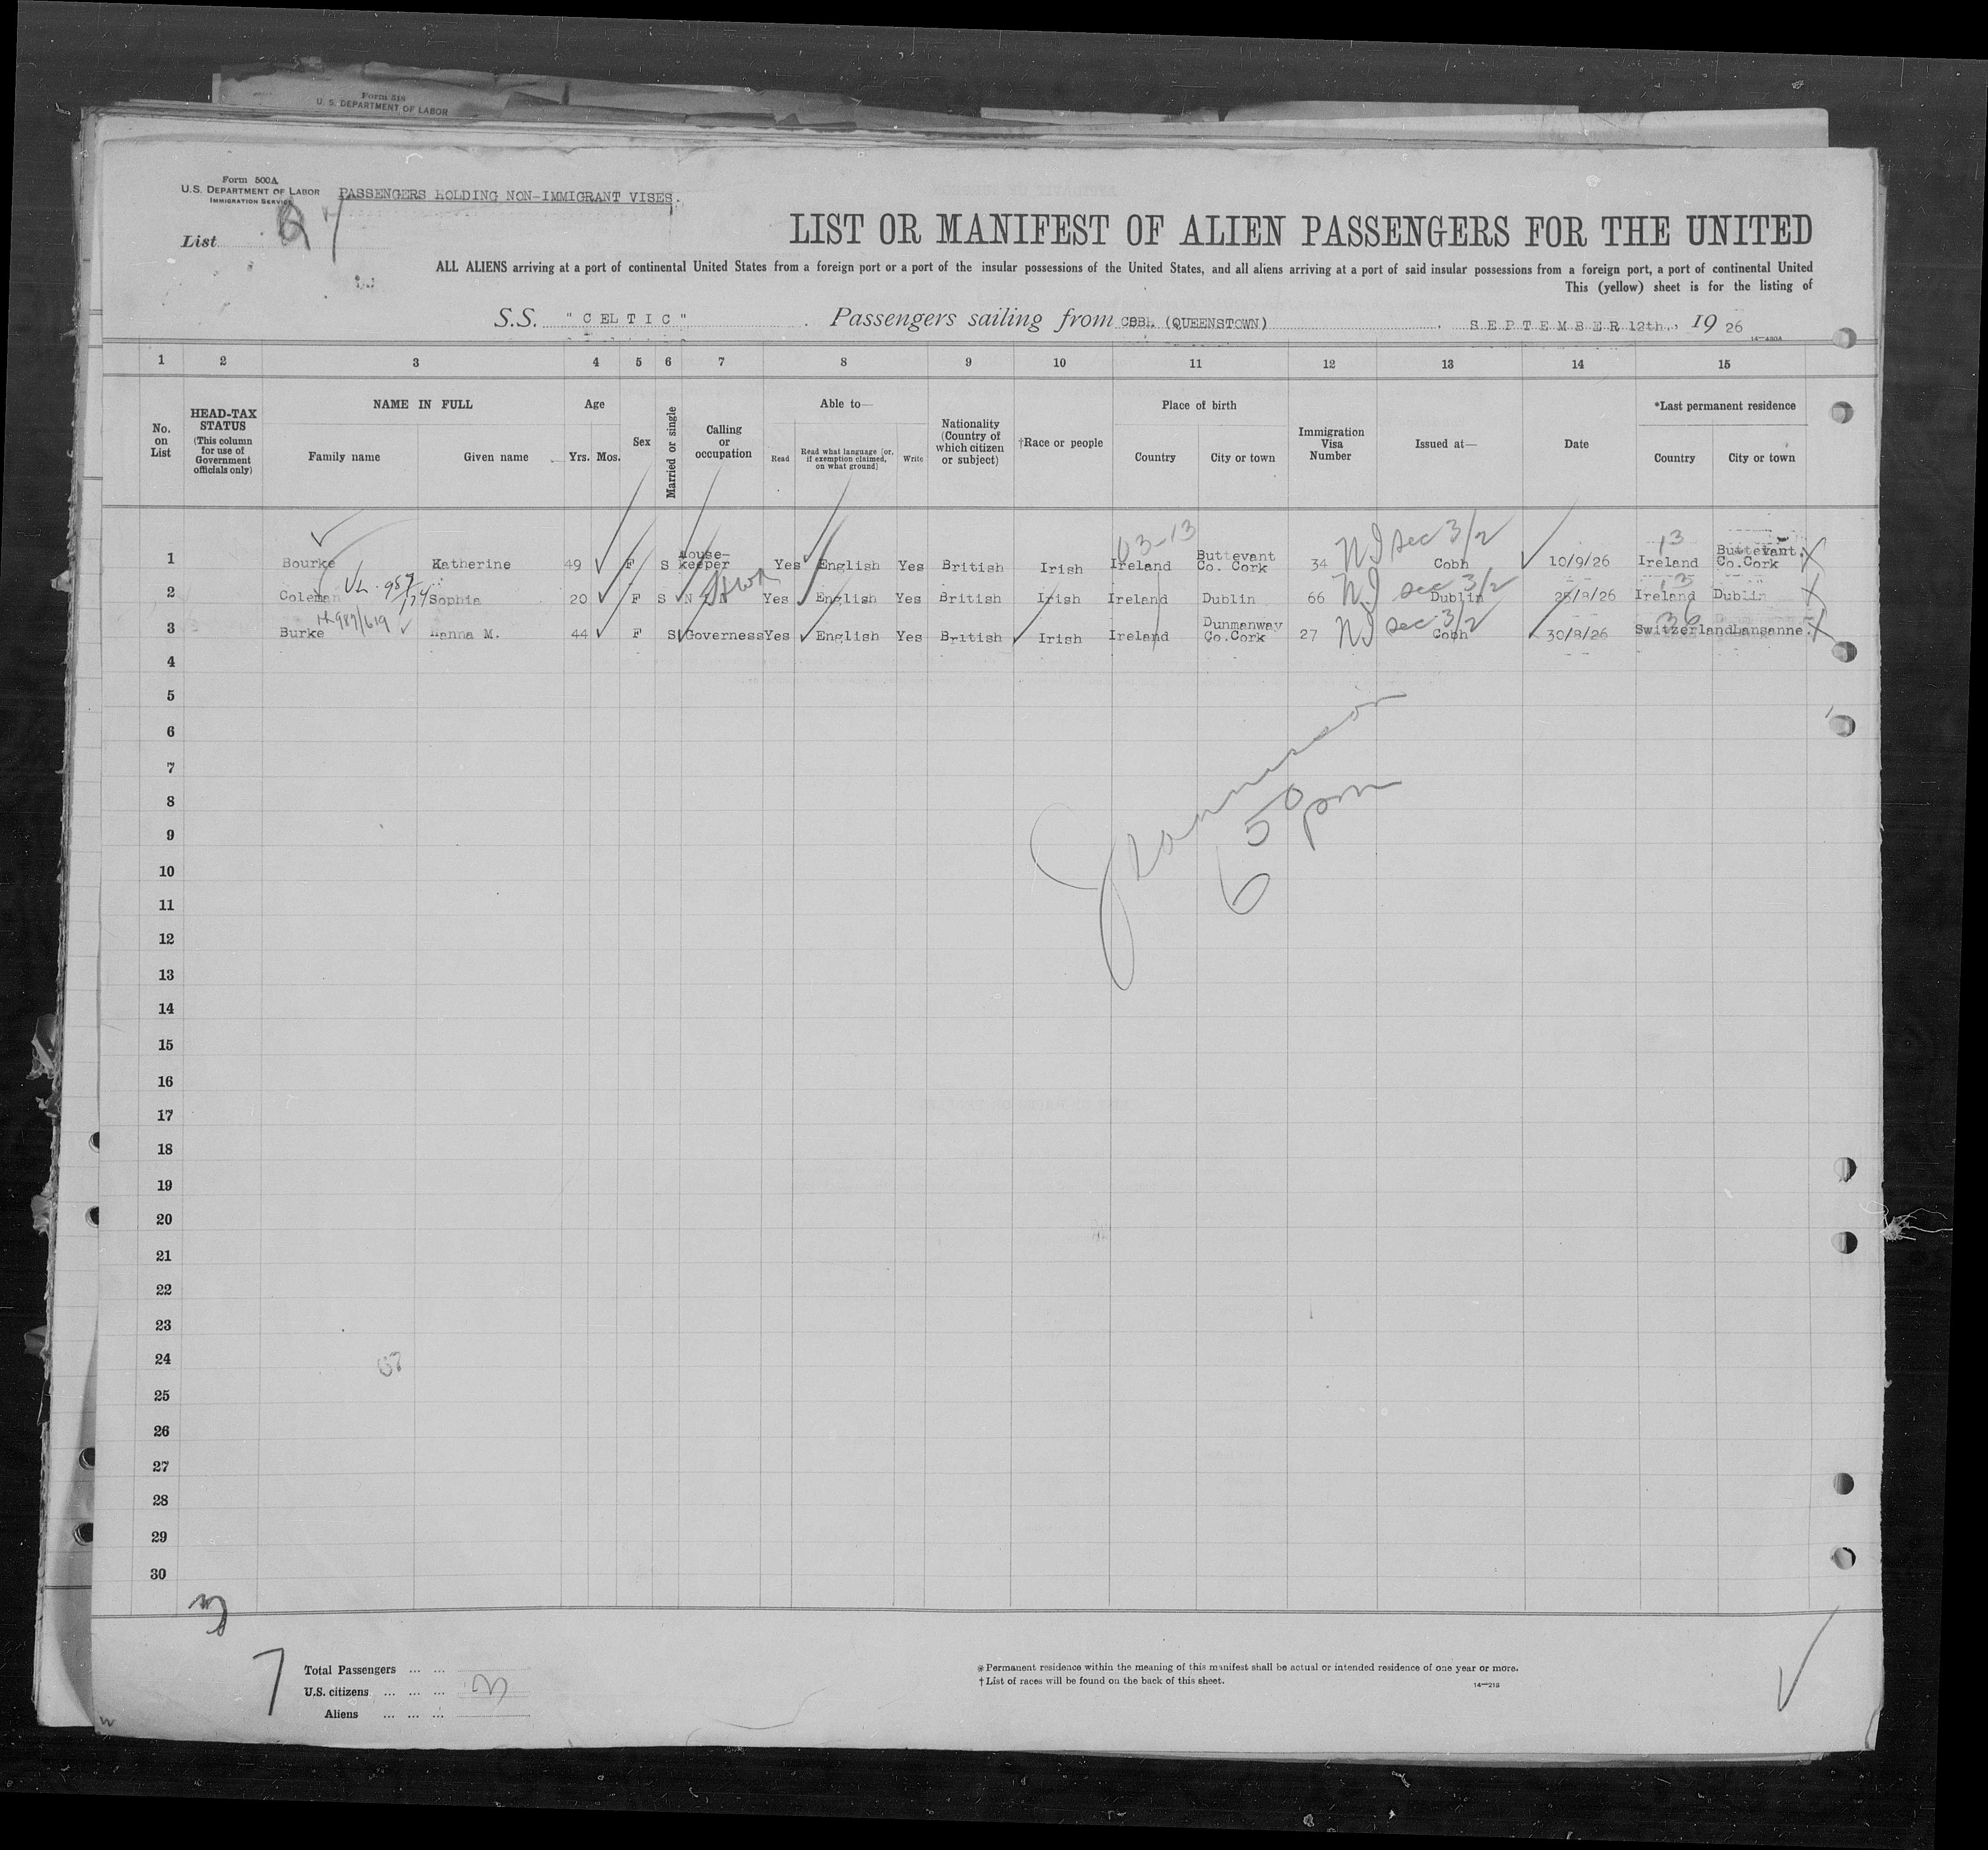 Form 518
U. S. DEPARTMENT OF LABOR
Form 500A
U.S. DEPARTMENT OF LABOR
IMMIGRATION SERVICE
PASSENGERS HOLDING NON-IMMIGRANT VISES.
List
LIST OR MANIFEST OF ALIEN PASSENGERS FOR THE UNITED
ALL ALIENS arriving at a port of continental United States from a foreign port or a port of the insular possessions of the United States, and all aliens arriving at a port of said insular possessions from a foreign port, a port of continental United
This (yellow) sheet is for the listing of
S.S. "CELTIC" Passengers sailing from (QUEENSTOWN) SEPTEMBER 12th., 19 26
14—430A
1 2 3 4 5 6 7 8 9 10 11 12 13 14 15
No. on List
HEAD-TAX STATUS (This column for use of Government officials only)
NAME IN FULL
Family name Given name
Age
Yrs. Mos.
Sex
Married or single
Calling or occupation
Able to—
Read
Read what language [or, if exemption claimed, on what ground]
Write
Nationality (Country of which citizen or subject)
†Race or people
Place of birth
Country City or town
Immigration Visa Number
Issued at—
Date
*Last permanent residence
Country City or town
03-13 NI sec 3/2 13
1 Bourke Katherine 49 F S House-keeper Yes English Yes British Irish Ireland Buttevant Co. Cork 34 Cobh 10/9/26 Ireland Buttevant. Co.Cork X
NI sec 3/2 13
2 Coleman Sophia 20 F S Yes English Yes British Irish Ireland Dublin 66 Dublin 25/8/26 Ireland Dublin X
NI sec 3/2 36
3 Burke Hanna M. 44 F S Governess Yes English Yes British Irish Ireland Dunmanway Co.Cork 27 Cobh 30/8/26 Switzerland Lansanne. X
4
5
6
7
8
9
10
11
12
13
14
15
16
17
18
19
20
21
22
23
24
25
26
27
28
29
30
6 50 pm
7
Total Passengers ... ...
U.S. citizens ... ... ...
Aliens ... ... ...
* Permanent residence within the meaning of this manifest shall be actual or intended residence of one year or more.
† List of races will be found on the back of this sheet.
14—213